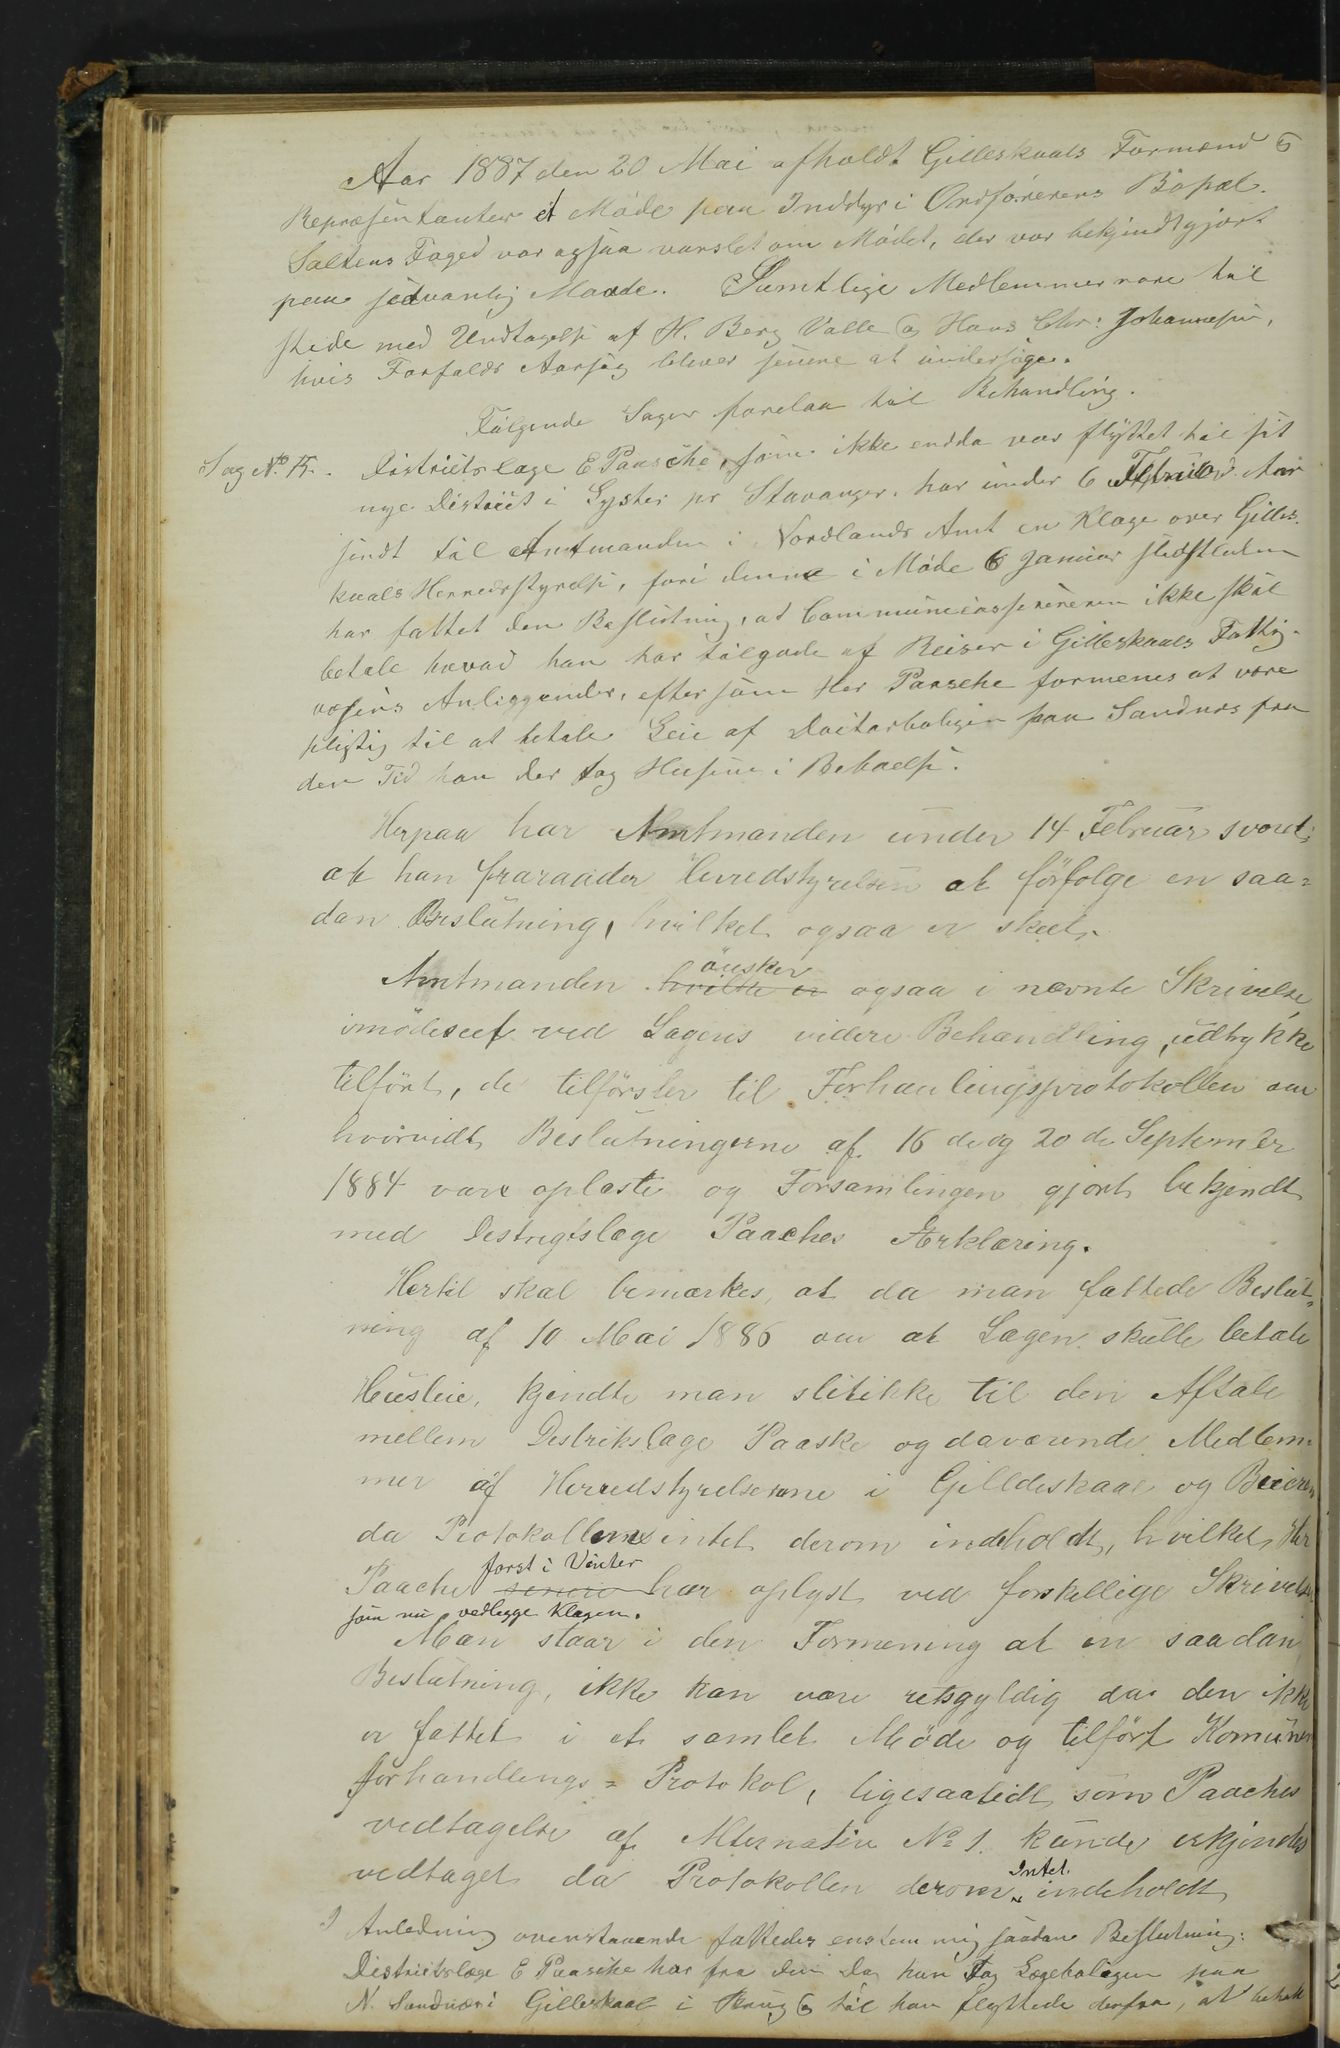 Aar 1887 den 20 Mai afholdt Gilleskaals Formænd og
Repræsentanter et Møde paa Inddyr i Ordførerens Bopæl.
Saltens Foged var ogsaa varslet om Mødet, der var bekjendtgjort
paa sedvanlig Maade. Samtlige Medlemmer vare til
stede med Undtagelse af H. Berg Valle og Hans Chr: Johannesen,
hvis Forfalds Aarsag bliver senere at undersøge.
Følgende Sager forelaa til Behandling.
Sag No 15. Districtslæge E Paasche, som ikke endda var flyttet til sit
nye District i Lyster pr Stavanger, har under 6 Februar d. Aar
sendt til Amtmanden i Nordlands Amt en Klage over Gilles-
kaals Herredsstyrelse, fordi denne i Møde 6 Januar sidstleden
har fattet den Beslutning, at Communecassereren ikke skal
betale hvad han har tilgode af Reiser i Gilleskaals Fattig-
væsens Anliggender, eftersom Her Paasche formenes at være
pligtig til at betale Leie af Doctorboligen paa Sandnes fra
den Tid han der tog Husene i Behold.
Herpaa har Amtmanden under 14 Februar svaret,
at han fraraader Herredstyrelsen at forfølge en saa=
dan Beslutning, hvilket ogsaa er skeet.
Amtmanden hvilke er ønsker ogsaa i nævnte Skrivelse
imødeseet ved Sagens videre Behandling, udtrykke
tilført, de tilførsler til Forhanlingsprotokollen om
hvorvidt Beslutningerne af 16 de og 20 de Septemer
1884 vare oplæste og Forsamlingen gjort bekjendt
med Destrigtslæge Paaches Ærklæring.
Hertil skal bemærkes, at da man fattede Beslut=
ning af 10 Mai 1886 om at Lægen skulle betale
Husleie, kjendte man slet ikke til den Aftale
mellem Destrikslæge Paaske og daværende Medlem=
mer af Herredstyrelserne i Gjilldeskaal og Beieren
da Protokollerne intet derom indeholdt, hvilket Hr
Paache senere først i Vinter har oplyst ved forskellige Skrivelser
som nu vedlegge Klagen.
Man staar i den Formening at en saadan
Beslutning, ikke kan være retsgyldig da den ikke
er fattet i et samlet Møde og tilført Komunen
forhandlings = Protokol, ligesaalidt som Paaches
vedtagelse af Alternativ No 1. kunde erkjendes
vedtaget da Protokollen derom Intet indeholdt
I Anledning ovenstaaende fattedes enstemmig saadan Beslutning:
Districtslæge E Paasche har fra den Dag han tog Lægeboligen paa
N. Sandnæs i Gilleskaal i Brug og til han flyttede derfra, at betale